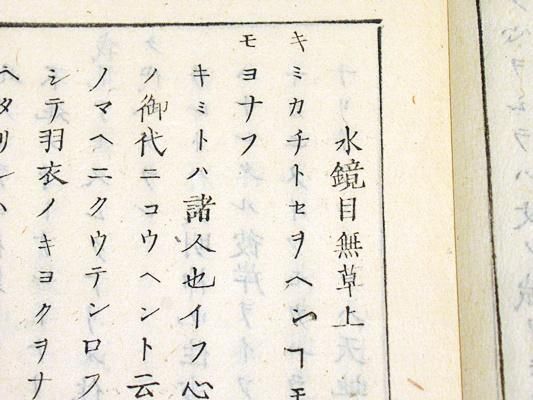 水鏡目無草上
キミカチトセヲヘンヿモ
モヨナフ
キミトハ諸人也イフ心
ノ御代ニコウヘント云
ノマヘニクウテンロフ
シテ羽衣ノキヨクヲナ
ヘタリシハ